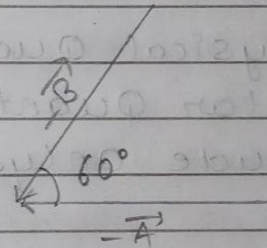 B⃗
60°
-A⃗